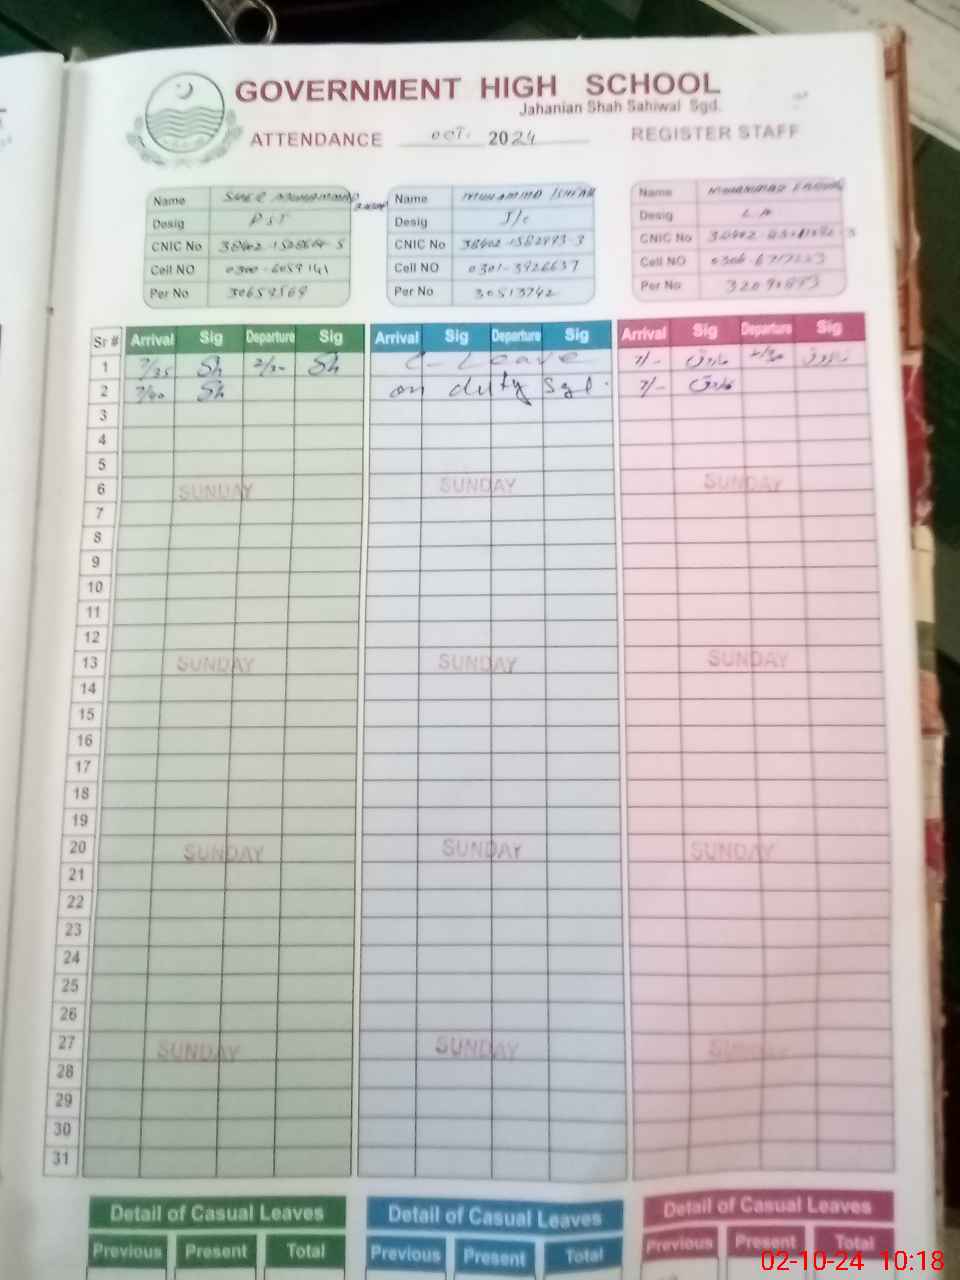 GOVERNMENT HIGH SCHOOL
Jahanian Shah Sahiwal Sgd.
ATTENDANCE OCT. 2024 REGISTER STAFF
Name SHER MUHAMMAD Name MUHAMMAD Name MUHAMMAD FAROOQ
Desig PST Desig J/C Desig
CNIC No CNIC No 38402-1582993-3 CNIC No
Cell NO Cell NO 0301-3926637 Cell NO
Per No 30659569 Per No 30513742 Per No
Sr # Arrival Sig Departure Sig Arrival Sig Departure Sig Arrival Sig Departure Sig
1 7/35 Sh 2/30 Sh C-Leave 7/- فاروق 2/30 فاروق
2 7/40 Sh on duty Sgd. 7/- فاروق
3
4
5
6 SUNDAY SUNDAY SUNDAY
7
8
9
10
11
12
13 SUNDAY SUNDAY SUNDAY
14
15
16
17
18
19
20 SUNDAY SUNDAY SUNDAY
21
22
23
24
25
26
27 SUNDAY SUNDAY SUNDAY
28
29
30
31
Detail of Casual Leaves Detail of Casual Leaves Detail of Casual Leaves
Previous Present Total Previous Present Total Previous Present Total
02-10-24 10:18